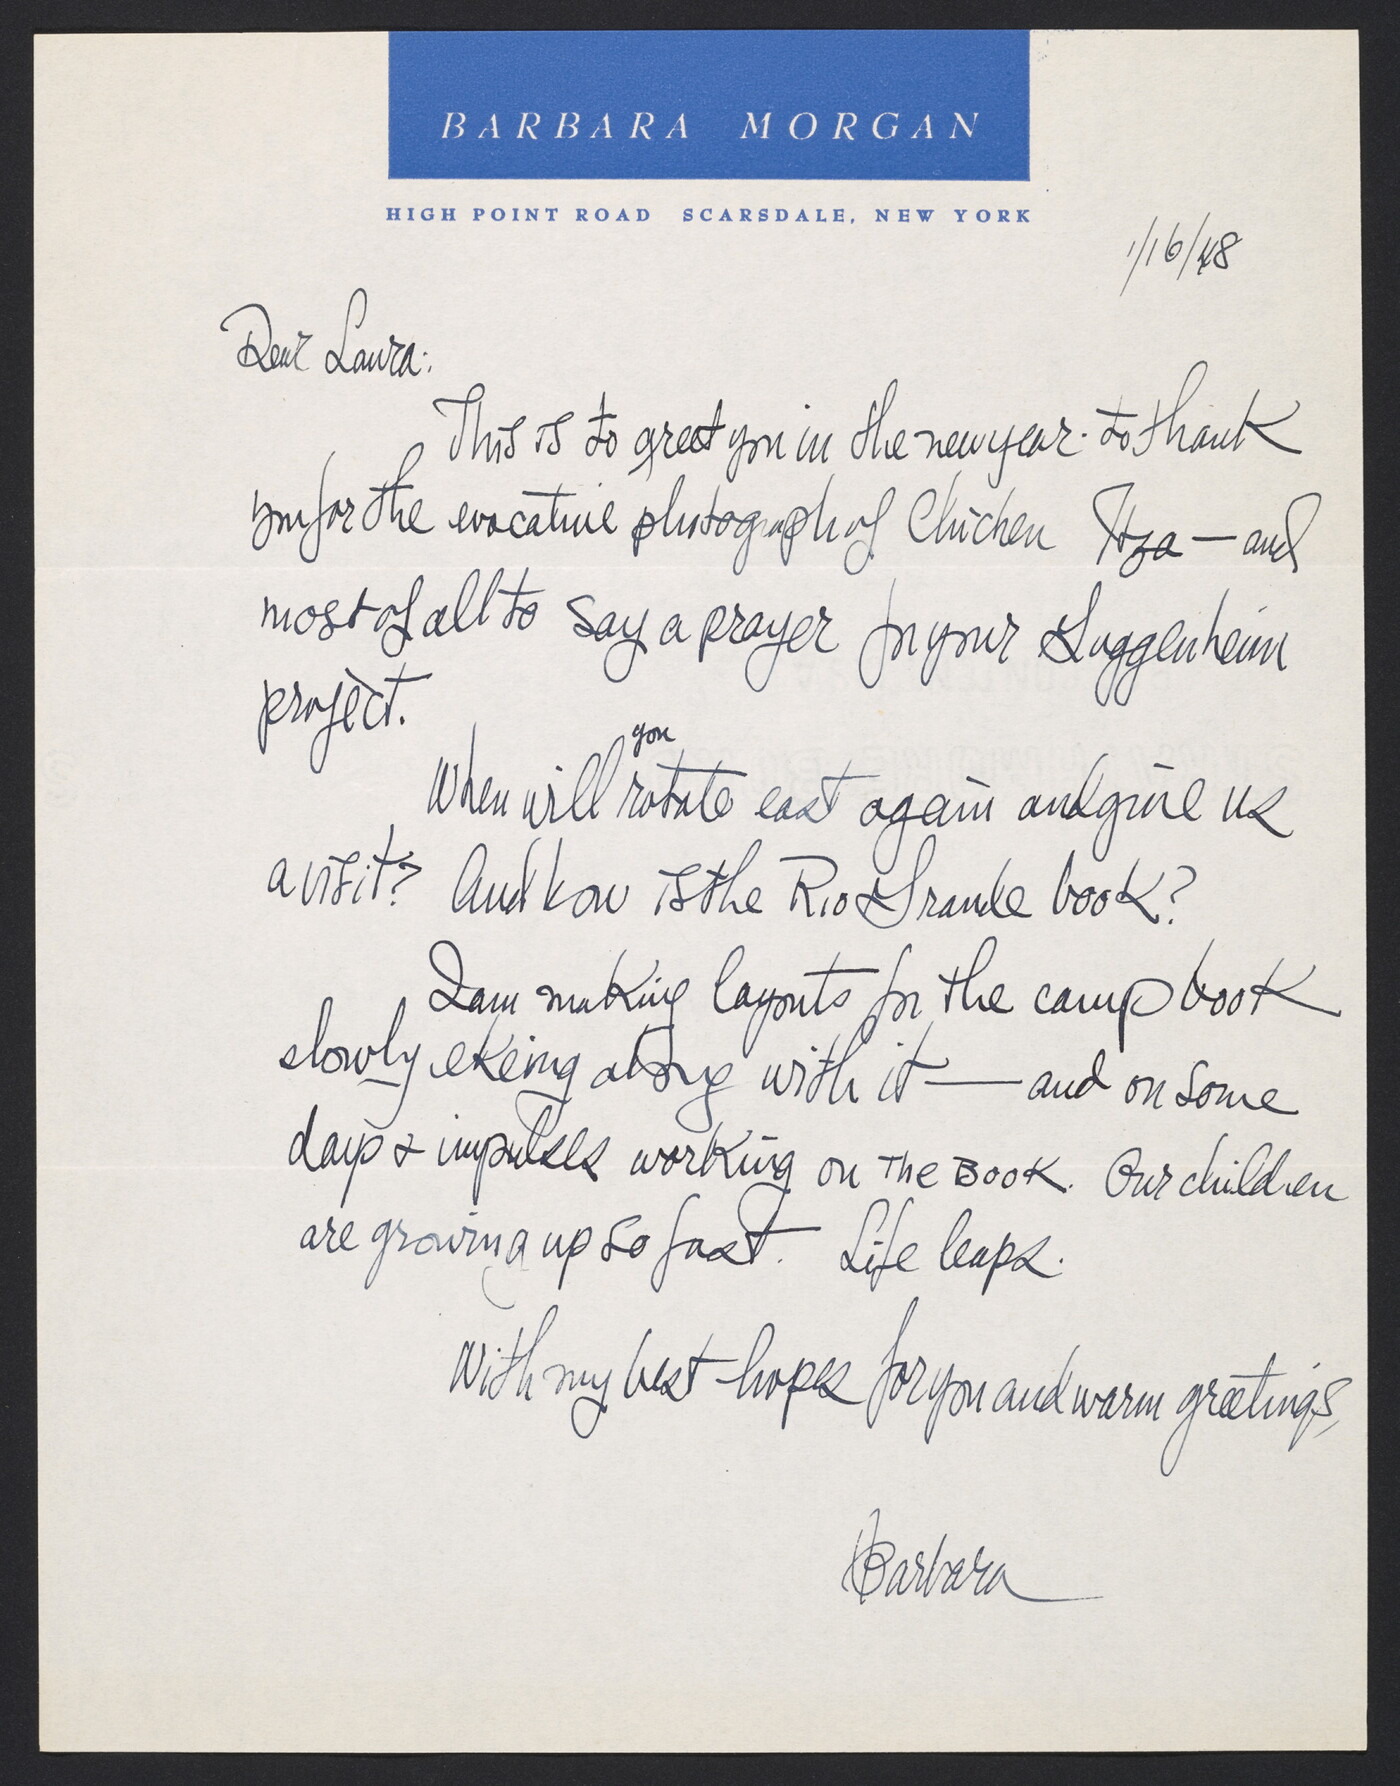 BARBARA MORGAN
HIGH POINT ROAD SCARSDALE, NEW YORK
1/16/48
Dear Laura:
This is to greet you in the new year - to thank
you for the evocative photograph of Chichen Itza — and
most of all to say a prayer for your Guggenheim
project.
you
When will rotate east again and give us
a visit? And how is the Rio Grande book?
I am making layouts for the camp book
slowly ekeing along with it — and on some
days & impulses working on THE BOOK. Our children
are growing up so fast. Life leaps.
With my best hopes for you and warm greetings,
Barbara